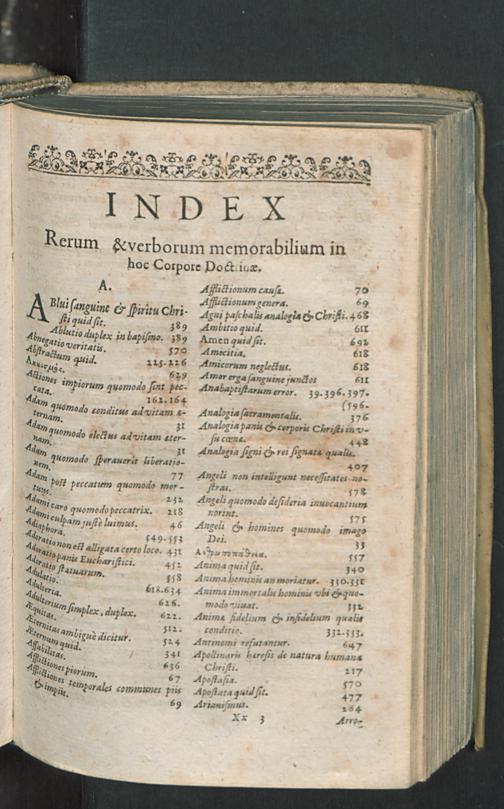 INDEX
Rerum & verborum memorabilium in
hoc Corpore Doctrinæ.
A.
ABlui sanguine & spiritu Chri-
sti quid sit. 389
Ablutio duplex in baptismo. 389
Abnegatio veritatis. 570
Abstractum quid. 225.226
629
Actiones impiorum quomodo sint pec-
cata. 162.164
Adam quomodo conditus ad vitam æ-
ternam. 31
Adam quomodo electus ad vitam æter-
nam. 31
Adam quomodo speraverit liberatio-
nem. 77
Adam post peccatum quomodo mor-
tuus. 252
Adami caro quomodo peccatrix. 218
Adami culpam justè luimus. 46
Adiaphora. 549.553
Adoratio non est alligata certo loco. 431
Adoratio panis Eucharistici. 452
Adoratio statuarum. 558
Adulatio.
Adulteria. 618.634
Adulterium simplex, duplex. 626.
Æquitas. 622.
Æternitas ambiguè dicitur. 512.
Æternum quid. 524
Affabilitas. 341
Afflictiones piorum. 636
67
Afflictiones temporales communes piis
& impiis. 69
Afflictionum causæ. 70
Afflictionum genera. 69
Agni paschalis analogia & Christi. 468
Ambitio quid. 611
Amen quid sit. 692
Amicitia. 618
Amicorum neglectus. 618
Amor erga sanguine junctos 611
Anabaptistarum error. 39.396.397.
(596.
Analogia sacramentalis. 376
Analogia panis & corporis Christi in v-
su cœnæ. 448
Analogia signi & rei signatæ qualis.
407
Angeli non intelligunt necessitates no-
stras. 578
Angeli quomodo desideria invocantium
norint. 575
Angeli & homines quomodo imago
Dei. 35
557
Anima quid sit. 340
Anima hominis an moriatur. 330.331
Anima immortalis hominis vbi & quo-
modo vivat. 332
Animæ fidelium & infidelium qualis
conditio. 332.333.
Antinomi refutantur. 647
Apollinaris heresis de natura humana
Christi. 217
Apostasia. 570
Apostata quid sit. 477
Arianismus. 264
Xx 3 Arro-